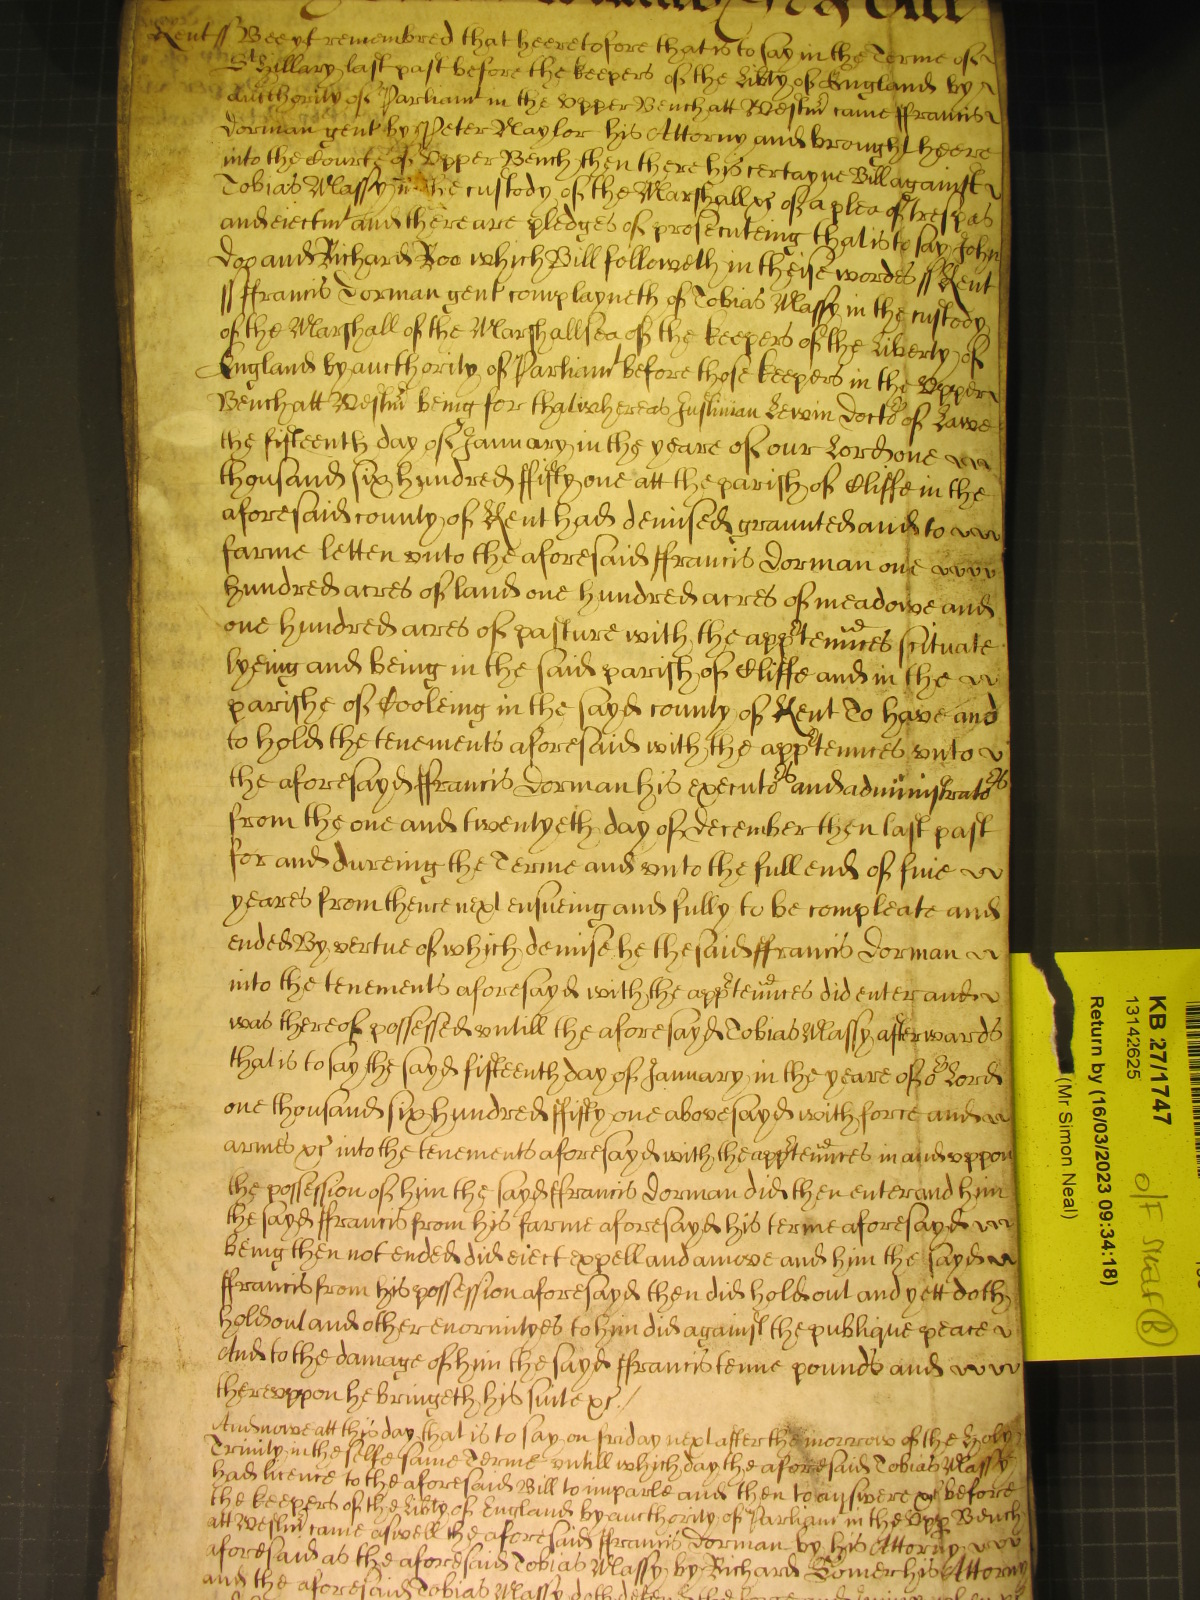 Kent ss Bee yt remembred that heeretofore that is to say in the Terme of
St Hillary last past before the keepers of the Libty of England by
authority of Parliamt in the Upper Bench att Westmr came ffrancis
Dorman gent by Peter Naylor his Attorny and brought heere
into the Courte of Upper Bench then there his certayne Bill against
Tobias Massy in the custody of the Marshall &c of a plea of trespas
and eiectmt and there are pledges of prosecuteing that is to say John
Doo and Richard Roo which Bill followeth in theise wordes ss Kent
ss ffrancis Dorman gent complayneth of Tobias Massy in the custody
of the Marshall of the Marshallsea of the keepers of the Liberty of
England by aucthority of Parliamt before those keepers in the Upper
Bench att Westmr being for that whereas Justinian Lewin Doctor of Lawe
the fifteenth day of January in the yeare of our Lord one
thousand six hundred fifty one att the parish of Cliffe in the
aforesaid county of Kent had demised graunted and to
farme letten unto the aforesaid ffrancis Dorman one
hundred acres of land one hundred acres of meadowe and
one hundred acres of pasture with the apptennces scituate
lyeing and being in the said parish of Cliffe and in the
parishe of Cooleing in the sayd county of Kent To have and
to hold the tenements aforesaid with the apptennces unto
the aforesayd ffrancis Dorman his executors and administrators
from the one and twentyeth day of December then last past
for and dureing the Terme and unto the full end of five
yeares from thence next ensueing and fully to be compleate and
ended By vertue of which demise he the said ffrancis Dorman
into the tenements aforesayd with the apptennces did enter and
was thereof possessed untill the aforesayd Tobias Massy afterwards
that is to say the sayd fifteenth day of January in the yeare of or Lord
one thousand six hundred fifty one abovesayd with force and
armes &c into the tenements aforesayd with the apptennces in and uppon
the possession of him the sayd ffrancis Dorman did then enter and him
the sayd ffrancis from his farme aforesayd his terme aforesayd
being then not ended did eiect expell and amove and him the sayd
ffrancis from his possession aforesayd then did hold out and yett doth
hold out and other enormityes to him did against the publique peace
And to the damage of him the sayd ffrancis tenne pounds and
thereuppon he bringeth his suite &c /
And nowe att this day that is to say on friday next after the morrow of the Holy
Trinity in the selfe same Terme untill which day the aforesaid Tobias Massy
had licence to the aforesaid Bill to imparle and then to answere &c before
the keepers of the Libty of England by aucthority of Parliamt in the Upp Bench
att Westmr came aswell the aforesaid ffrancis Dorman by his Attorny
aforesaid as the aforesaid Tobias Massy by Richard Comer his Attorny
and the aforesaid Tobias Massy doth defend the force and
KB 27/1747
13142625
Return by (16/03/2023 09:34:18)
(Mr Simon Neal)